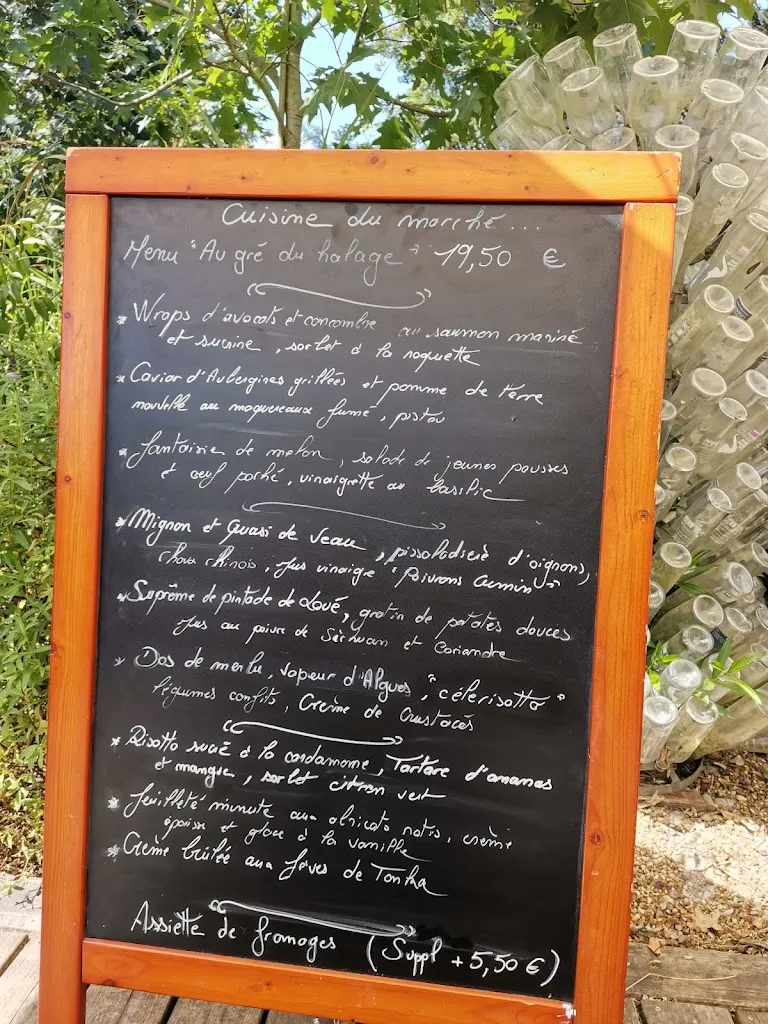 Cuisine du marché...
Menu "Au gré du halage" 19,50 €
* Wraps d'avocats et concombre au saumon mariné
et sucrine, sorbet à la roquette
* Caviar d'Aubergines grillées et pomme de terre
nouvelle au maquereaux fumé, pistou
* fantaisie de melon, salade de jeunes pousses
et œuf poché, vinaigrette au basilic
* Mignon et Quasi de Veau, pissaladière d'oignons,
choux chinois, Jus vinaigré "Poivrons Cumin"
* Suprême de pintade de Loué, gratin de patates douces
Jus au poivre de Sichuan et Coriandre
* Dos de merlu, vapeur d'Algues, "célerisotto"
légumes confits, Crème de Crustacés
* Risotto sucré à la cardamome, Tartare d'ananas
et mangue, sorbet citron vert
* feuilleté minute aux abricots rotis, crème
épaisse et glace à la vanille
* Crème brûlée aux fèves de Tonka
Assiette de fromages (Suppl + 5,50 €)